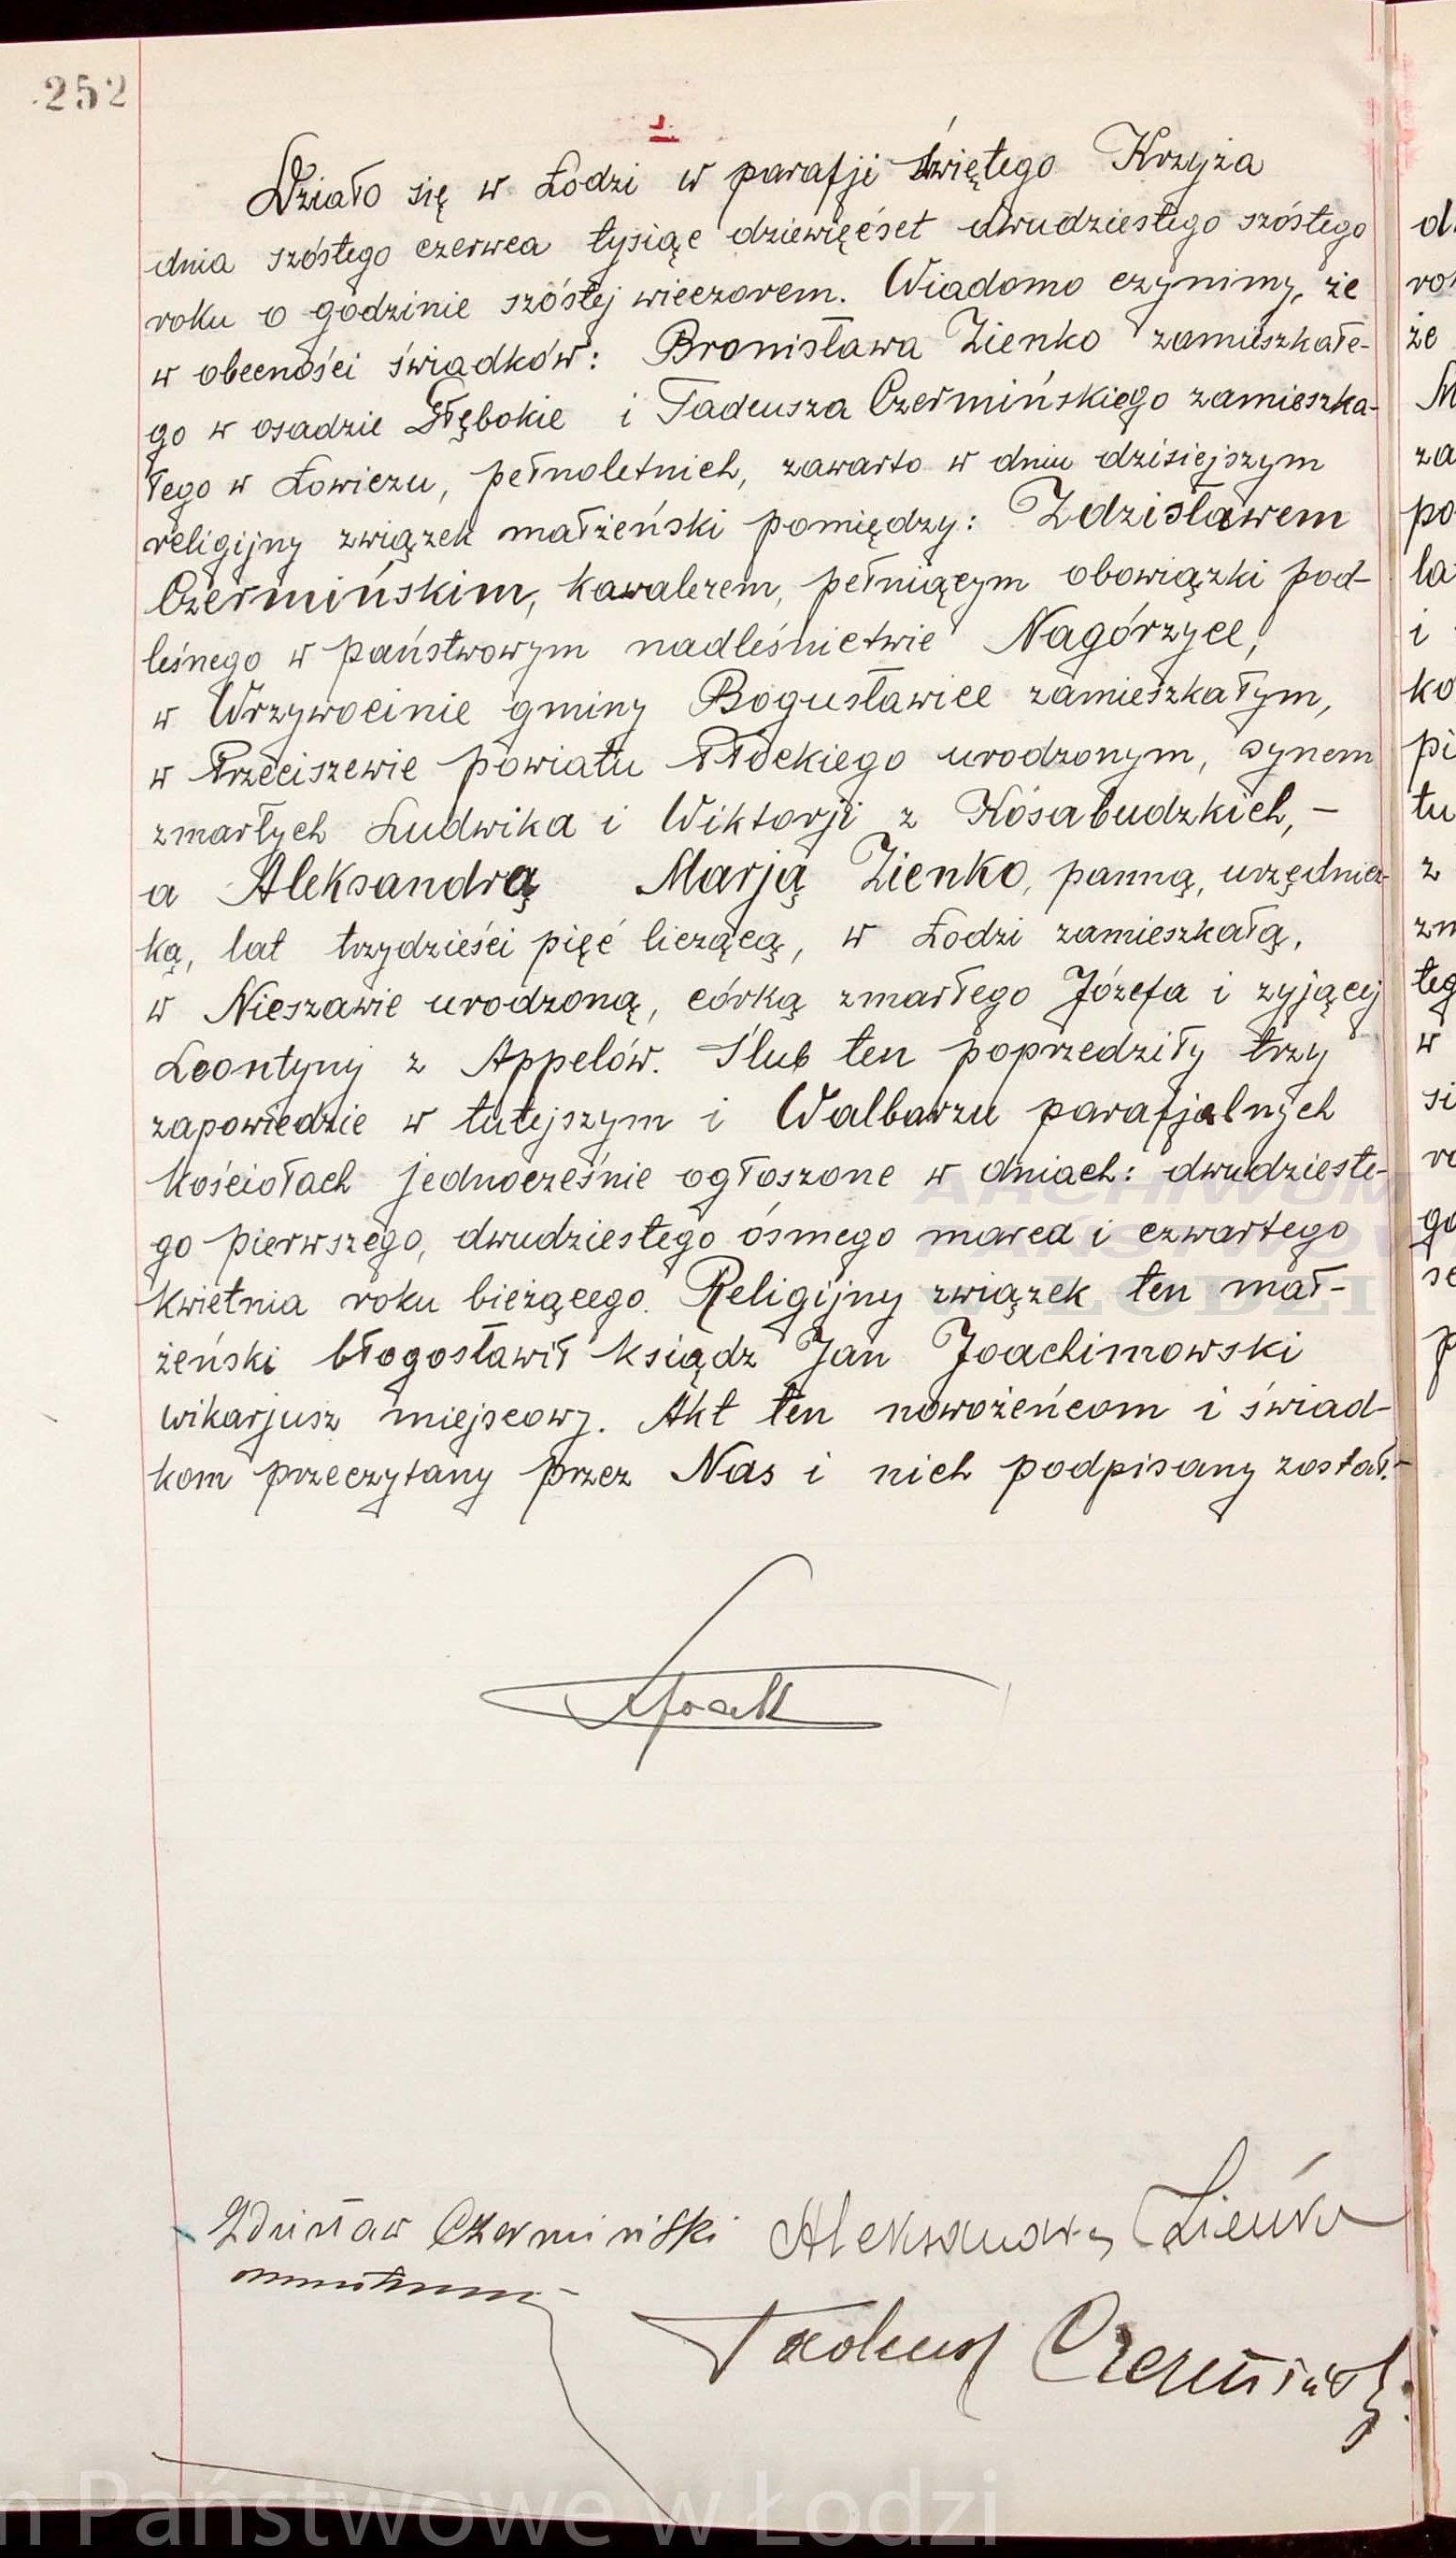 252
1.
Działo się w Łodzi w parafji świętego Krzyża
dnia szóstego czerwca tysiąc dziewięćset dwudziestego szóstego
roku o godzinie szóstej wieczorem. Wiadomo czynimy, że
w obecności świadków: Bronisława Zienko zamieszkałe-
go w osadzie Głębokie i Tadeusza Czermińskiego zamieszka-
łego w Łowiczu, pełnoletnich, zawarto w dniu dzisiejszym
religijny związek małżeński pomiędzy: Zdzisławem
Czermińskim, kawalerem, pełniącym obowiązki pod-
leśnego w państwowym nadleśnictwie Nagórzyce,
w gminy Bogusławice zamieszkałym,
w Trzeciszewie powiatu Płockiego urodzonym, synem
zmarłych Ludwika i Wiktorji z Kosabudzkich, -
a Aleksandrą Marją Zienko, panną, urzędnicz-
ką, lat trzydzieści pięć liczącą, w Łodzi zamieszkałą,
w Nieszawie urodzoną, córką zmarłego Józefa i żyjącej
Leontyny z Appelów. Ślub ten poprzedziły trzy
zapowiedzie w tutejszym i Walbarzu parafjalnych
kościołach jednocześnie ogłoszone w dniach: dwudzieste-
go pierwszego, dwudziestego ósmego marca i czwartego
kwietnia roku bieżącego. Religijny związek ten mał-
żeński błogosławił ksiądz Jan Joachimowski
wikarjusz miejscowy. Akt ten nowożeńcom i świad-
kom przeczytany przez Nas i nich podpisany został.-
Zdzisław Czermiński Aleksandra Zienko
Tadeusz Czermiński
ARCHIWUM
PAŃSTWOWE
W ŁODZI
m Państwowe w Łodzi